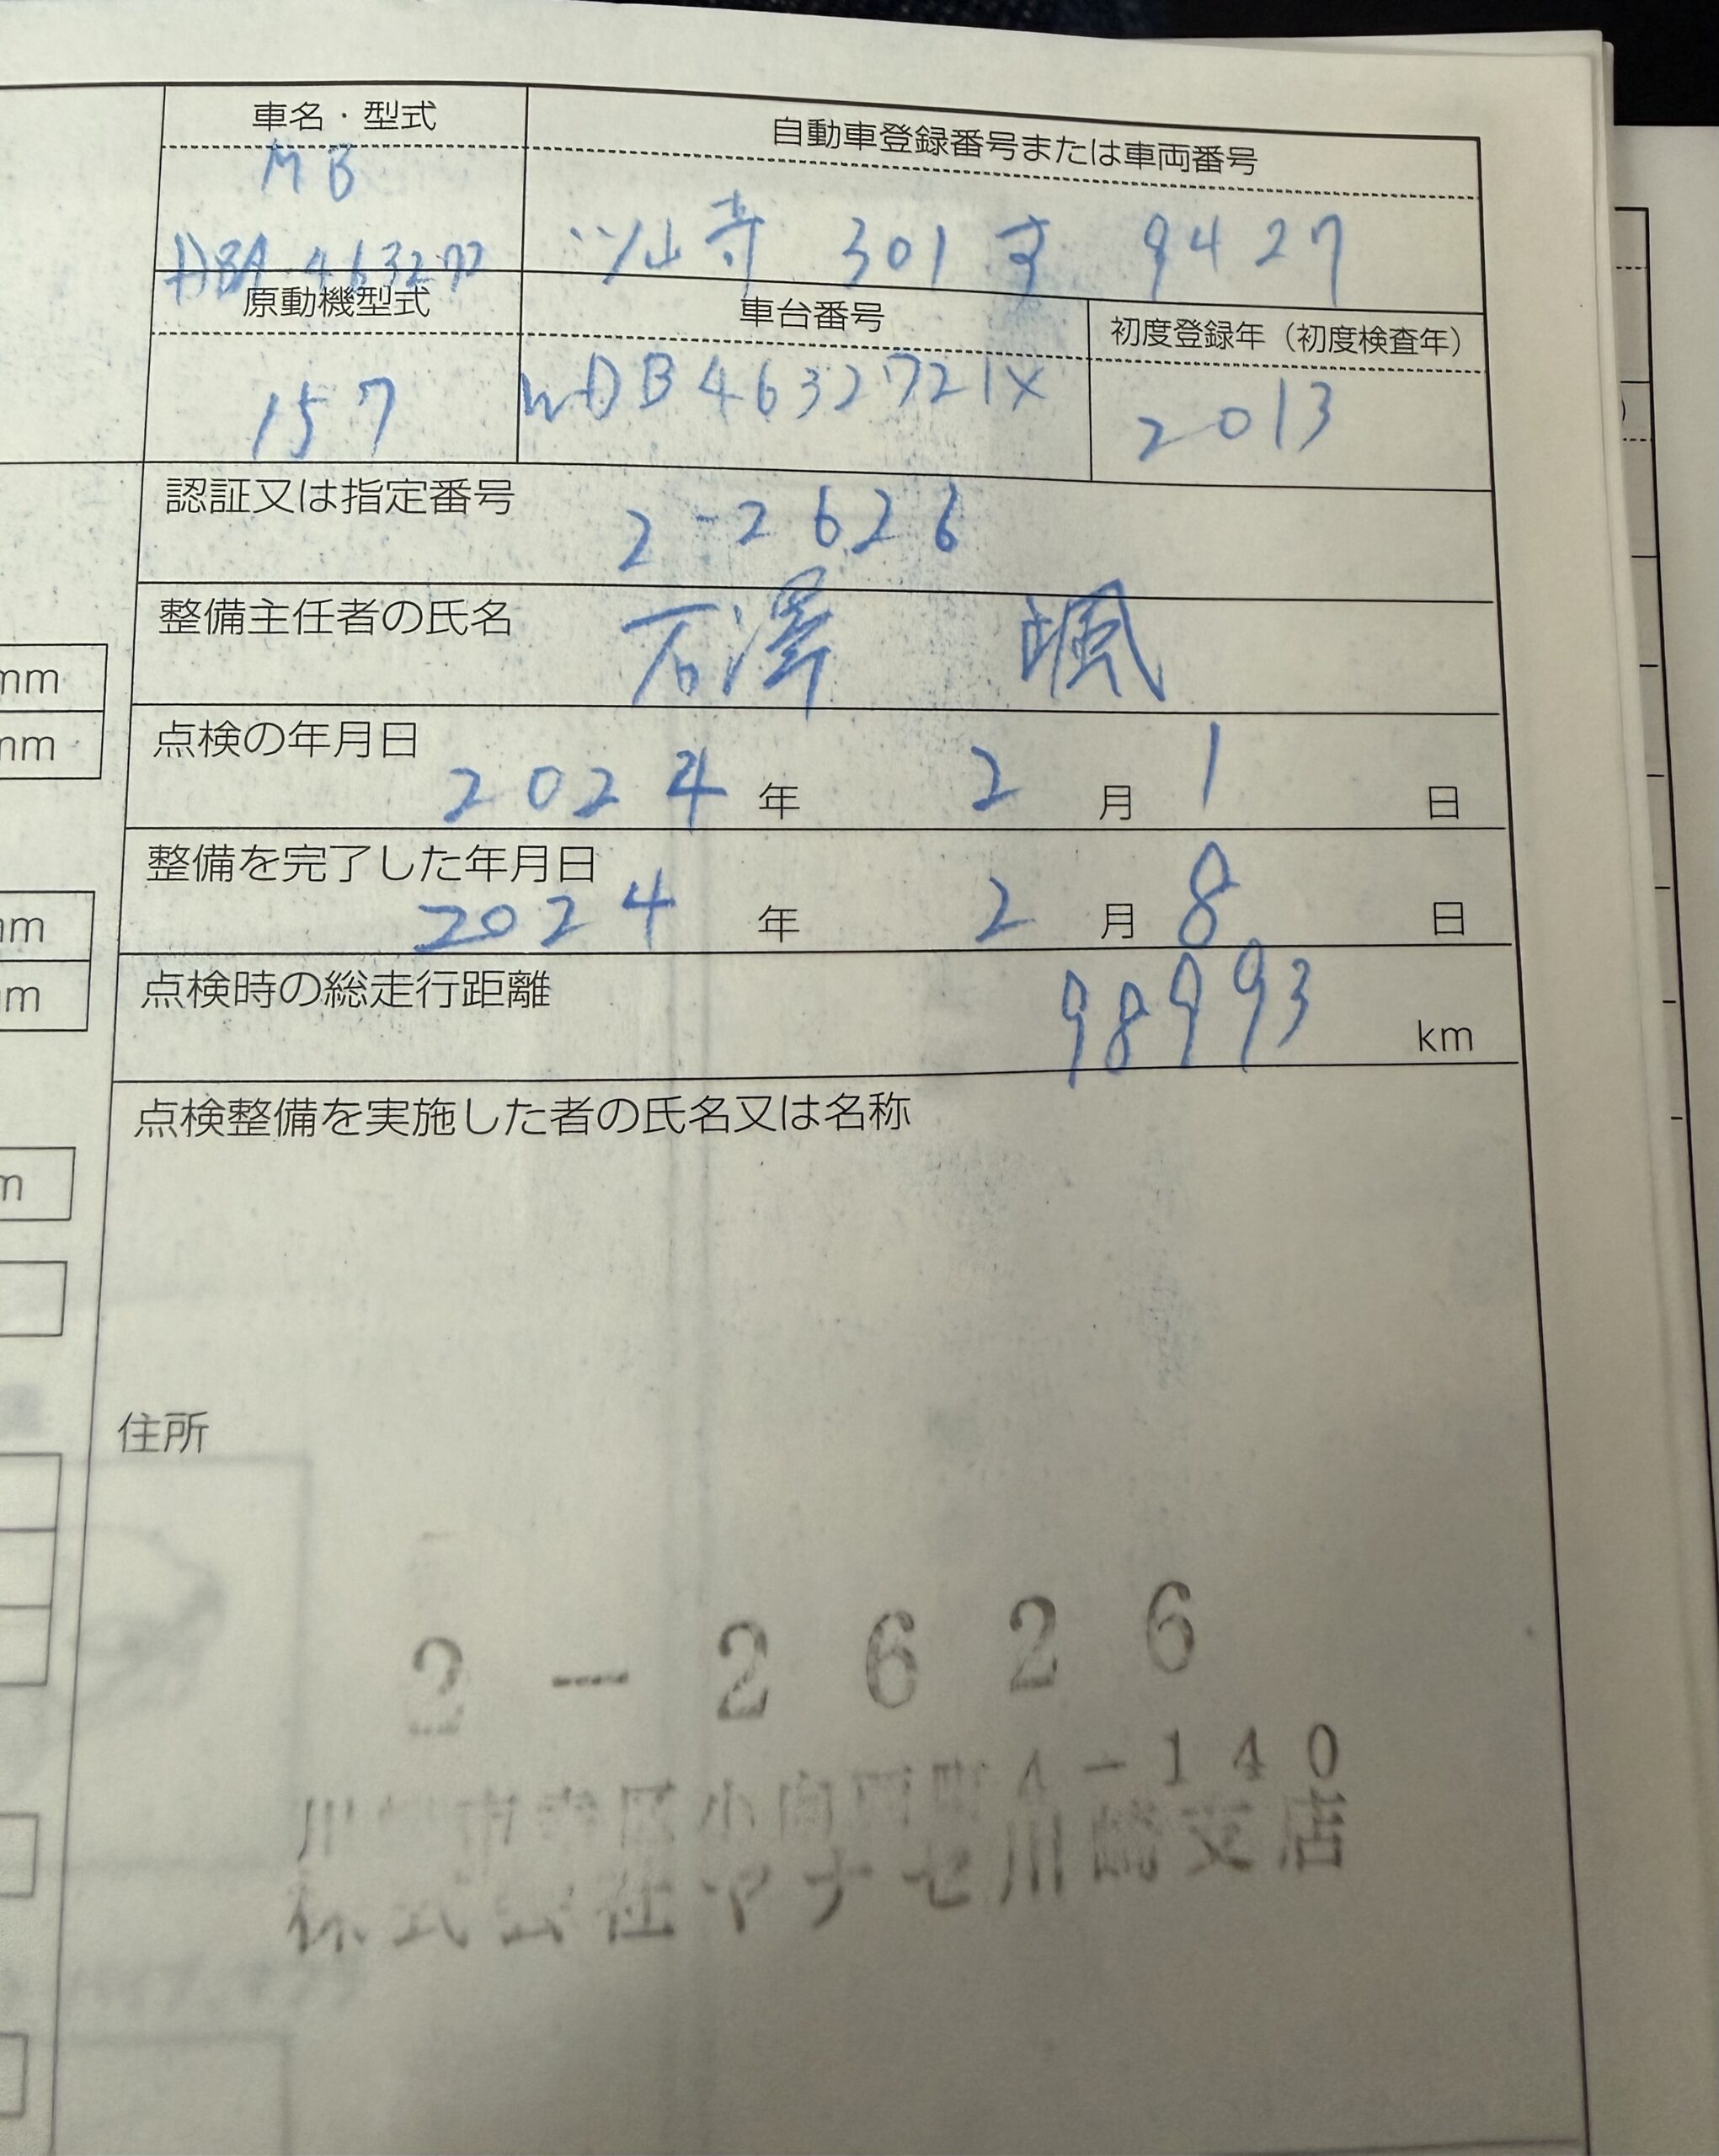 車名・型式
自動車登録番号または車両番号
MB
301 す 9427
463272
原動機型式
車台番号
初度登録年（初度検査年）
157
WDB4632721X
2013
認証又は指定番号
2-2626
整備主任者の氏名
石澤 颯
点検の年月日
2024 年 2 月 1 日
整備を完了した年月日
2024 年 2 月 8 日
点検時の総走行距離
98993 km
点検整備を実施した者の氏名又は名称
住所
2-2626
川 市幸区小向 -140
株式会社ヤナセ川崎支店
mm
mm
mm
m
m